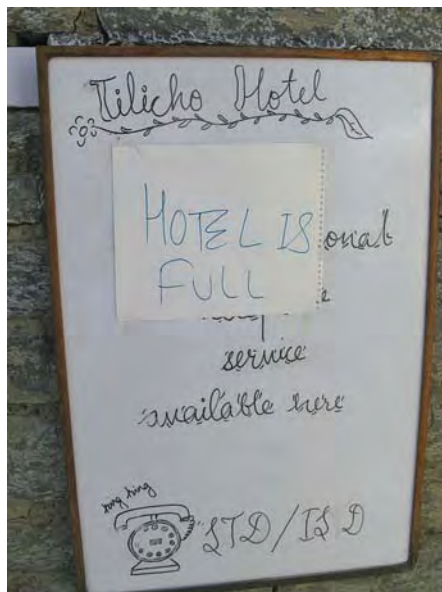 Tilicho Hotel
HOTEL IS
FULL
onal
service
available here
ring ring
STD/ISD